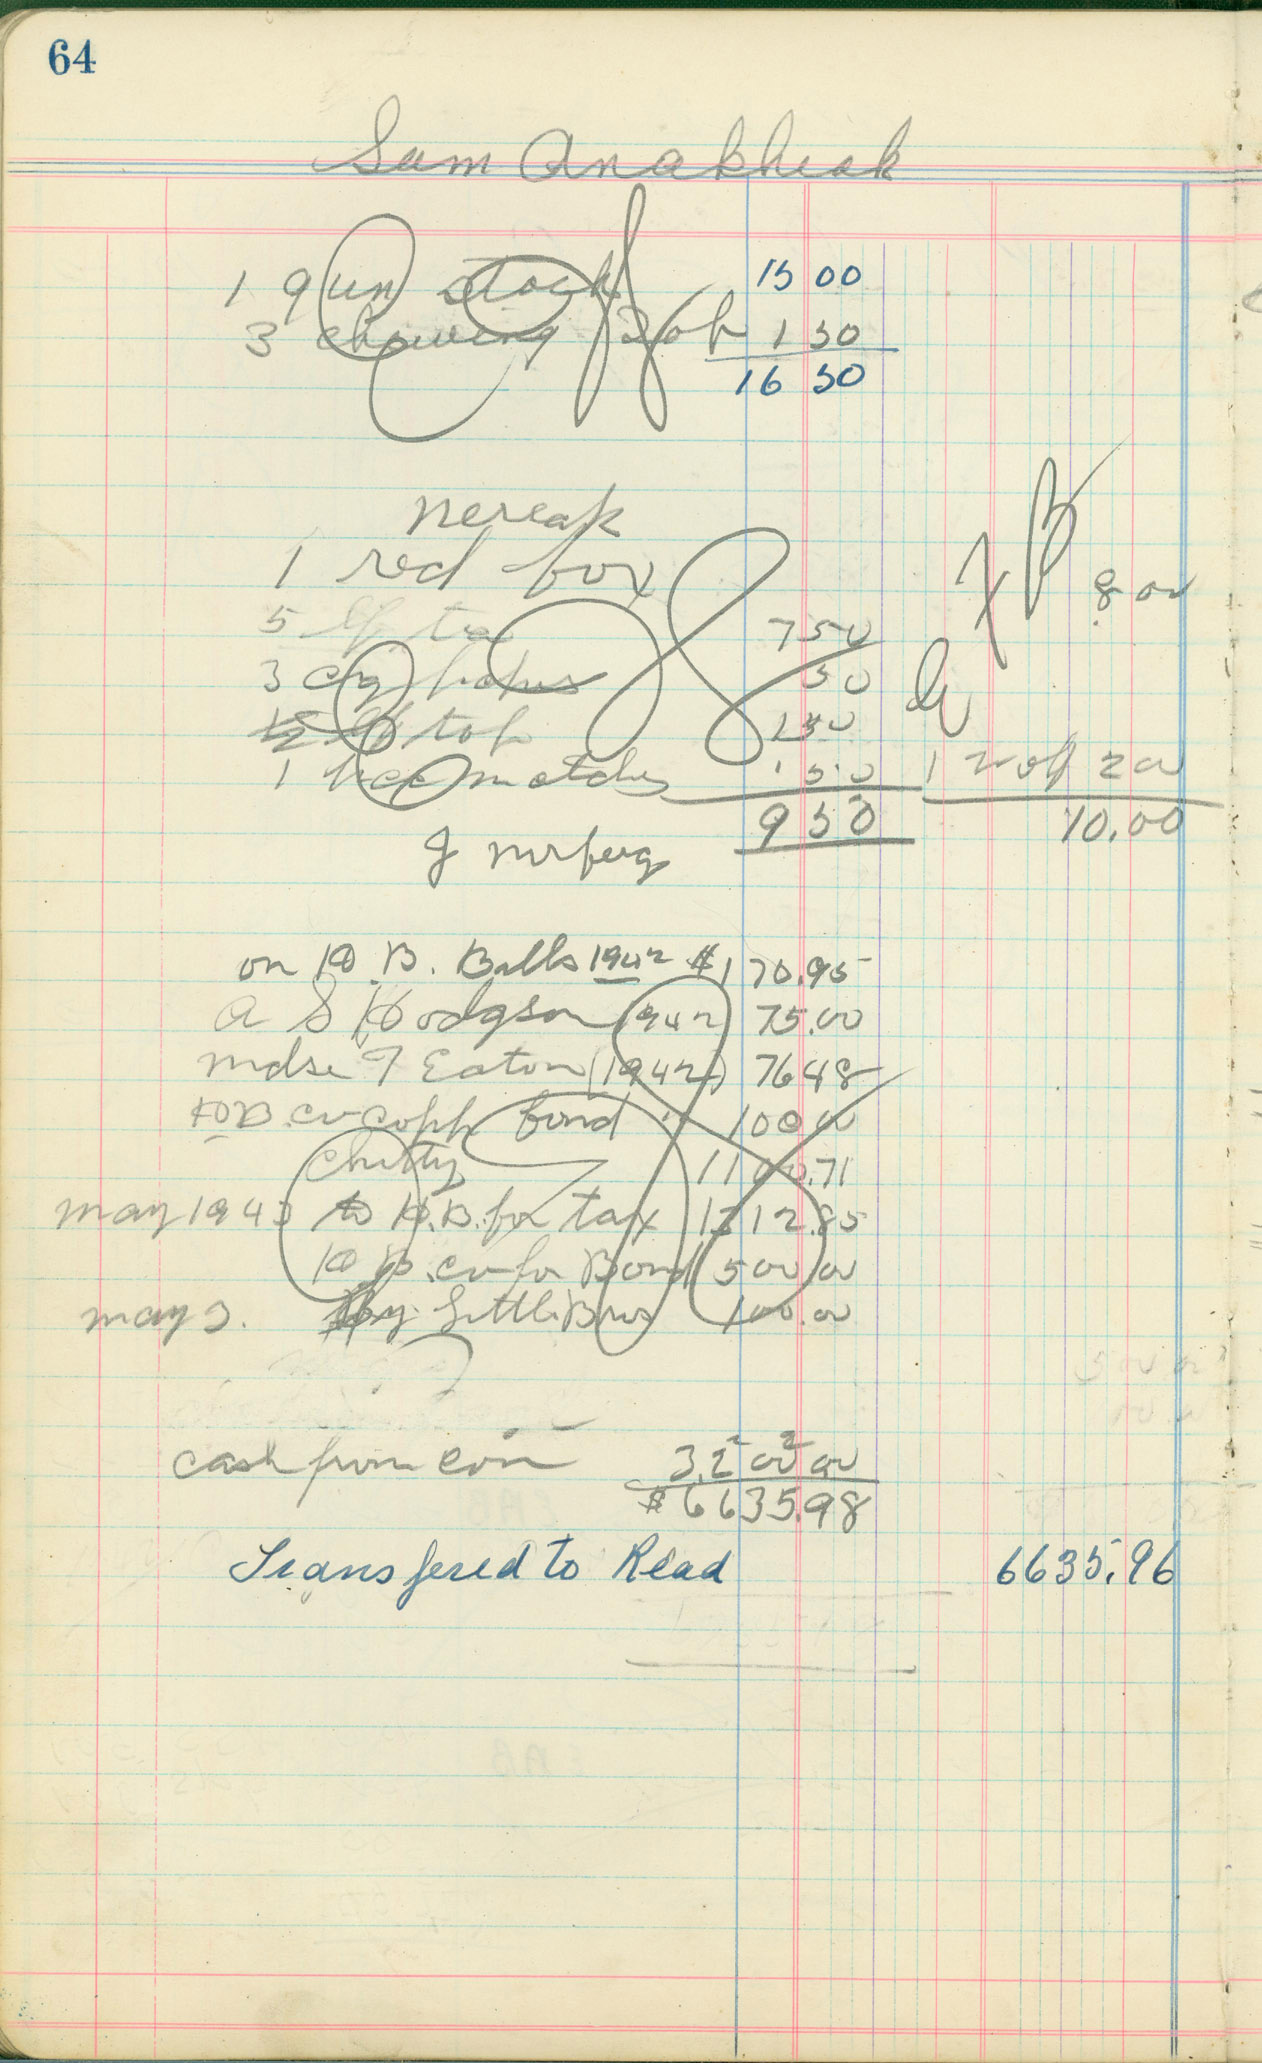 64
Sam Anakheak
1 gun stock 15 00
3 chewing Tob 1 50
16 50
Nereak
1 red fox
8 00
5 lb tea 7 50
3 cig papers 50
tob 1 50
1 matches 50
1 wolf 2 00
9 50 10.00
on H. B. Bills 1942 $170.95
A S Hodgson (1942) 75.00
mdse T Eaton (1942) 76 48
HB. bond 100 00
Chitty 1100.71
may 1943 to H.B. for tax 1312.85
H.B. for Bond 500 00
may by Little Bros 100.00
cash from 3,200 00
$6635.98
Transfered to Read 6635.96